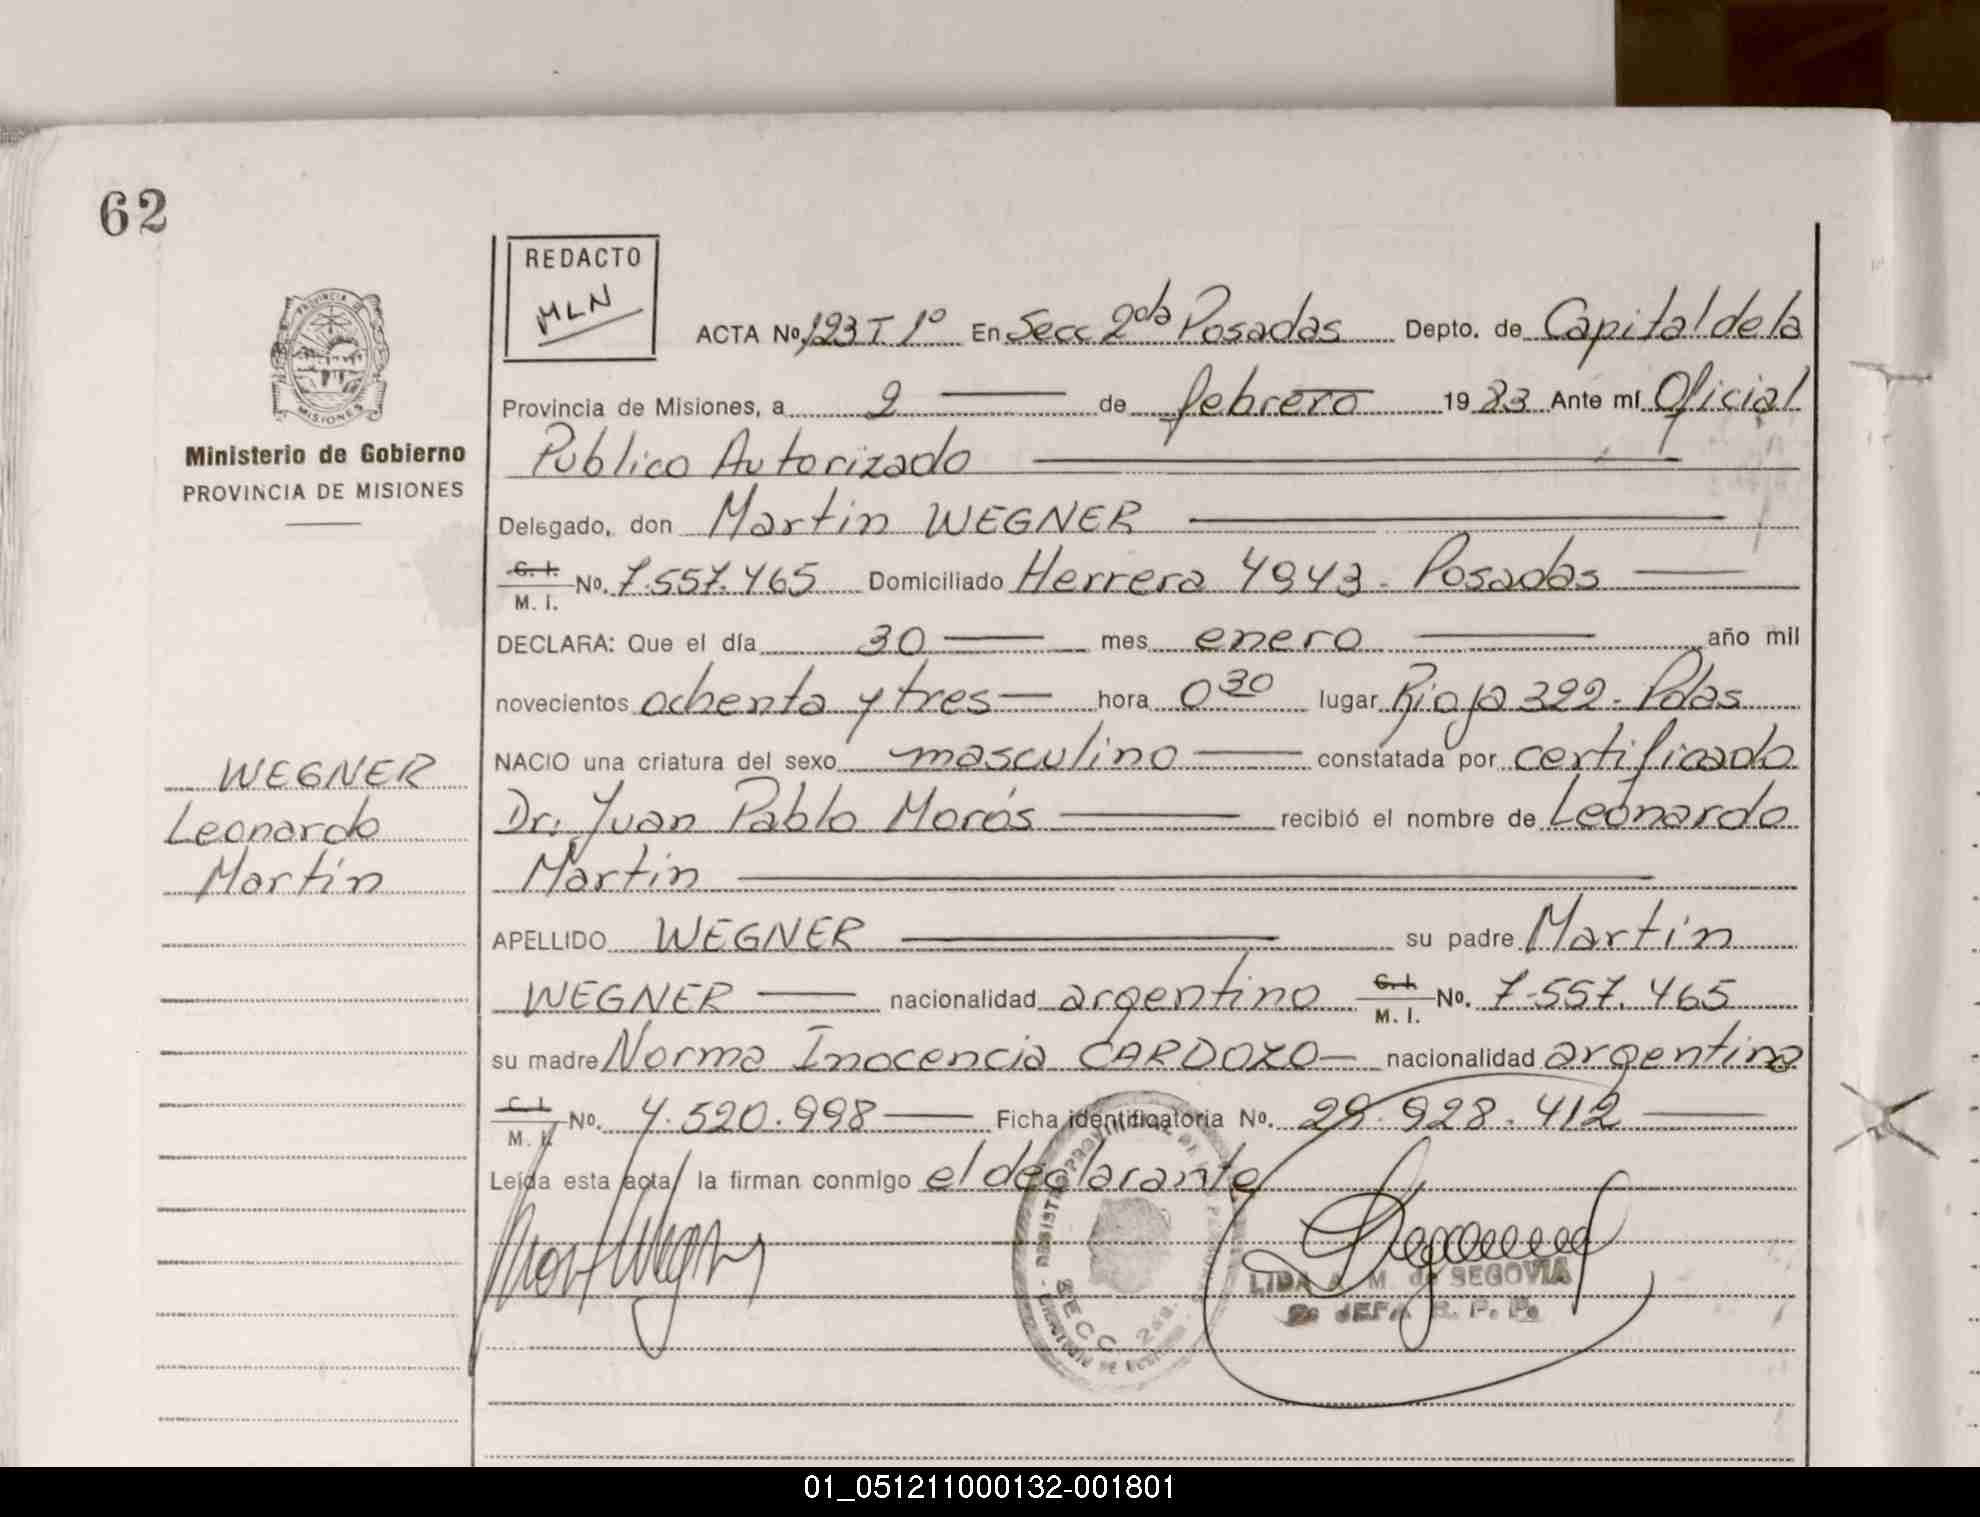 62
REDACTO
MLN
PROVINCIA DE
MISIONES
Ministerio de Gobierno
PROVINCIA DE MISIONES
ACTA No 123 T. 1º En Secc 2da Posadas Depto. de Capital de la
Provincia de Misiones, a 2 de febrero 1983 Ante mí Oficial
Público Autorizado
Delegado, don Martin WEGNER
C. I.
M. I. No. 7.557.465 Domiciliado Herrera 4943 - Posadas
DECLARA: Que el día 30 mes enero año mil
novecientos ochenta y tres hora 0 30 lugar Rioja 322 - Pdas
NACIO una criatura del sexo masculino constatada por certificado
Dr. Juan Pablo Morós recibió el nombre de Leonardo
Martín
WEGNER
Leonardo
Martín
APELLIDO WEGNER su padre Martin
WEGNER nacionalidad argentino C. I.
M. I. No. 7.557.465
su madre Norma Inocencia CARDOZO nacionalidad argentina
C. I.
M. I. No. 4.520.998 Ficha identificatoria No. 29.928.412
Leída esta acta la firman conmigo el declarante
REGISTRO PROVINCIAL DE
SECC. 2da.
LIDA A. M. de SEGOVIA
2a JEFA R. P. P.
01_051211000132-001801